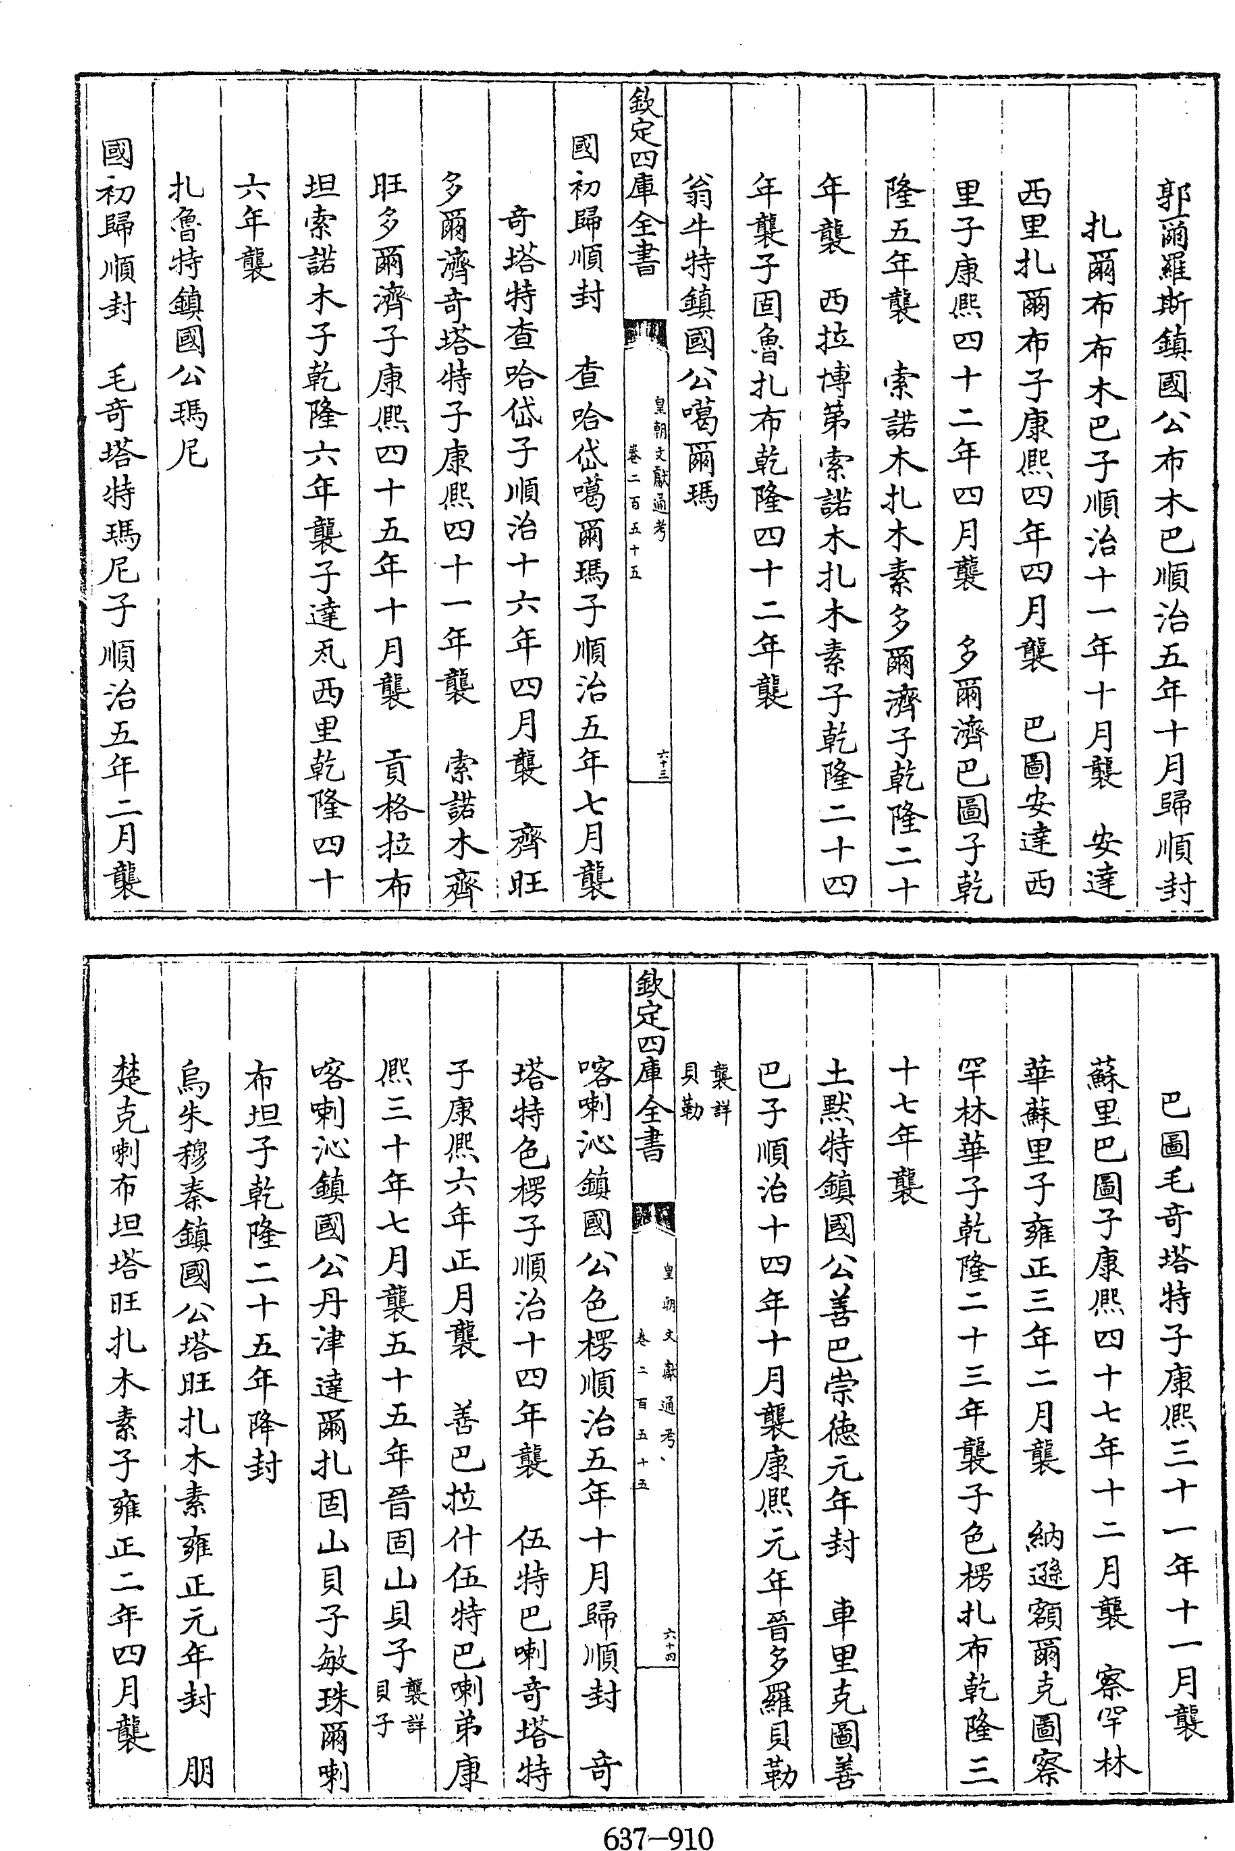 郭爾羅斯鎮國公布木巴順治五年十月歸順封
扎爾布布木巴子順治十一年十月襲　安達
西里扎爾布子康熙四年四月襲　巴圖安達西
里子康熙四十二年四月襲　多爾濟巴圖子乾
隆五年襲　索諾木扎木素多爾濟子乾隆二十
年襲　西拉博第索諾木扎木素子乾隆二十四
年襲子固魯扎布乾隆四十二年襲
翁牛特鎮國公噶爾瑪
欽定四庫全書
皇朝文獻通考
卷二百五十五
六十三
國初歸順封　查哈岱噶爾瑪子順治五年七月襲
奇塔特查哈岱子順治十六年四月襲　齊旺
多爾濟奇塔特子康熙四十一年襲　索諾木齊
旺多爾濟子康熙四十五年十月襲　貢格拉布
坦索諾木子乾隆六年襲子達瓦西里乾隆四十
六年襲
扎魯特鎮國公瑪尼
國初歸順封　毛奇塔特瑪尼子順治五年二月襲
巴圖毛奇塔特子康熙三十一年十一月襲
蘇里巴圖子康熙四十七年十二月襲　察罕林
華蘇里子雍正三年二月襲　納遜額爾克圖察
罕林華子乾隆二十三年襲子色楞扎布乾隆三
十七年襲
土默特鎮國公善巴崇德元年封　車里克圖善
巴子順治十四年十月襲康熙元年晉多羅貝勒
襲詳
貝勒
欽定四庫全書
皇朝文獻通考
卷二百五十五
六十四
喀喇沁鎮國公色楞順治五年十月歸順封　奇
塔特色楞子順治十四年襲　伍特巴喇奇塔特
子康熙六年正月襲　善巴拉什伍特巴喇弟康
熙三十年七月襲五十五年晉固山貝子襲詳
貝子
喀喇沁鎮國公丹津達爾扎固山貝子敏珠爾喇
布坦子乾隆二十五年降封
烏朱穆秦鎮國公塔旺扎木素雍正元年封　朋
楚克喇布坦塔旺扎木素子雍正二年四月襲
637-910